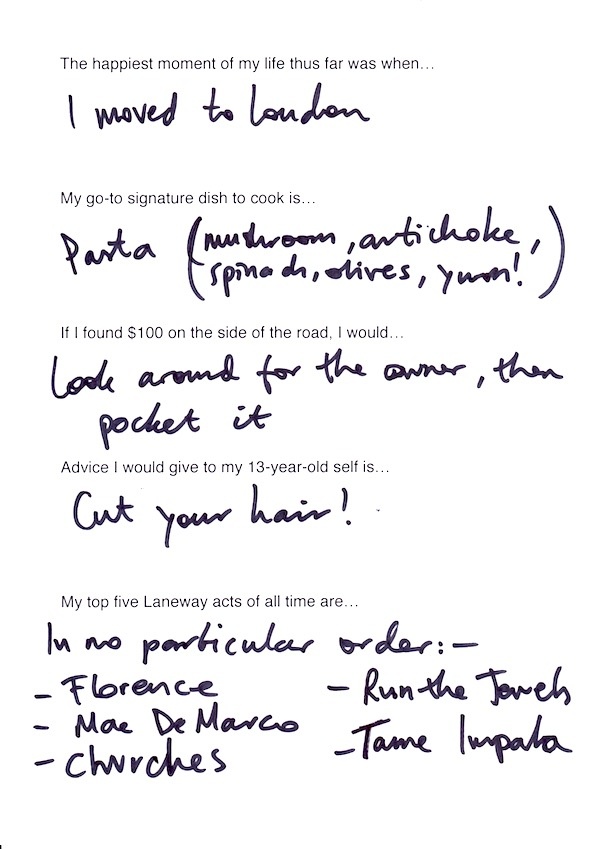 The happiest moment of my life thus far was when...
I moved to London
My go-to signature dish to cook is...
Pasta (mushroom, artichoke,
spinach, olives, yum!)
If I found $100 on the side of the road, I would...
Look around for the owner, then
pocket it
Advice I would give to my 13-year-old self is...
Cut your hair!
My top five Laneway acts of all time are...
In no particular order:-
- Florence
- Mac DeMarco
- Chvrches
- Run the Jewels
- Tame Impala